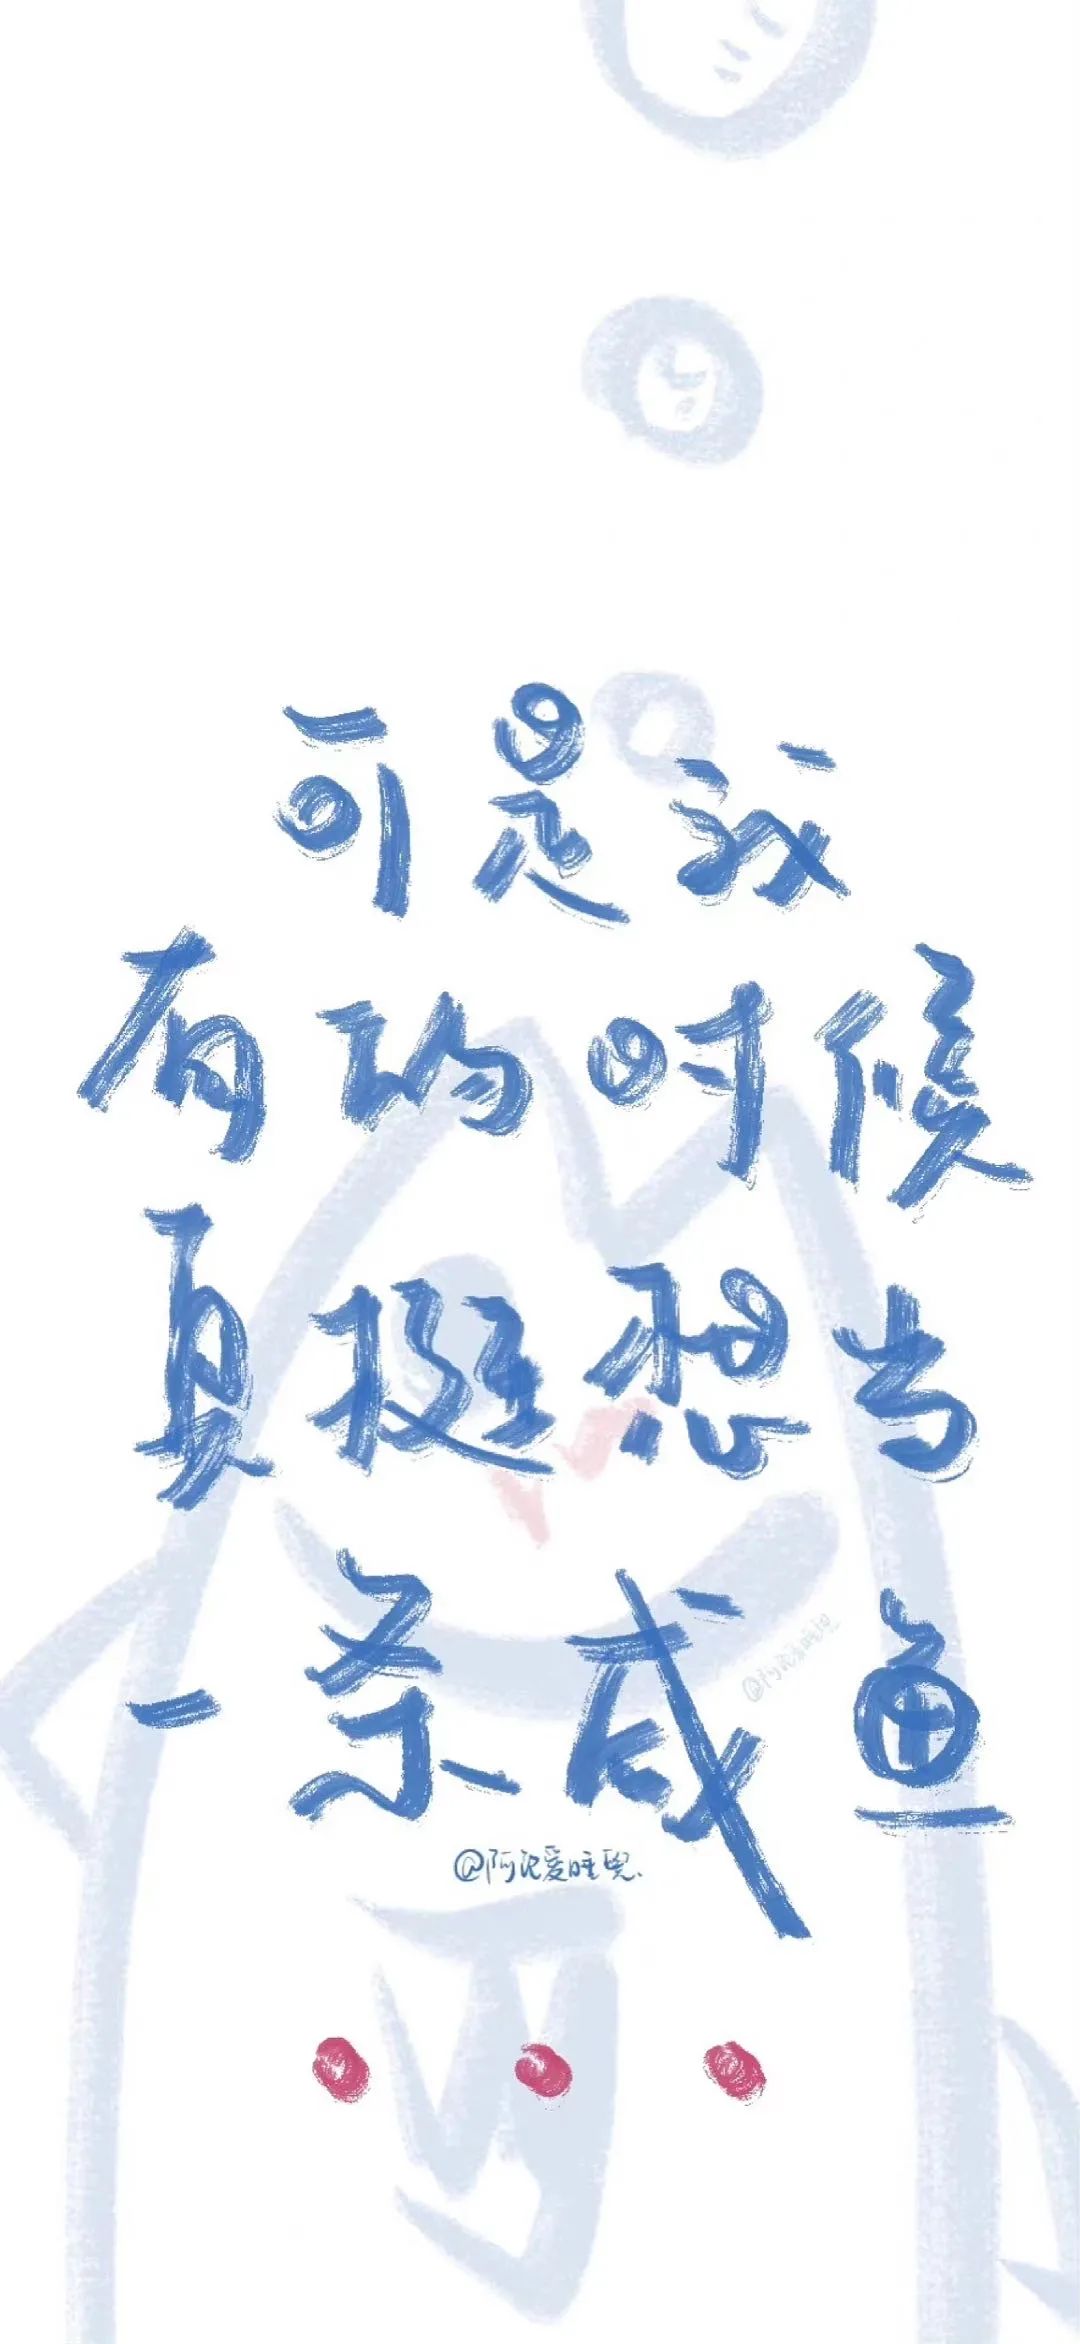 可是我
有的时候
真挺想当
一条咸鱼
@阿沈爱睡觉.
@阿沈爱睡觉